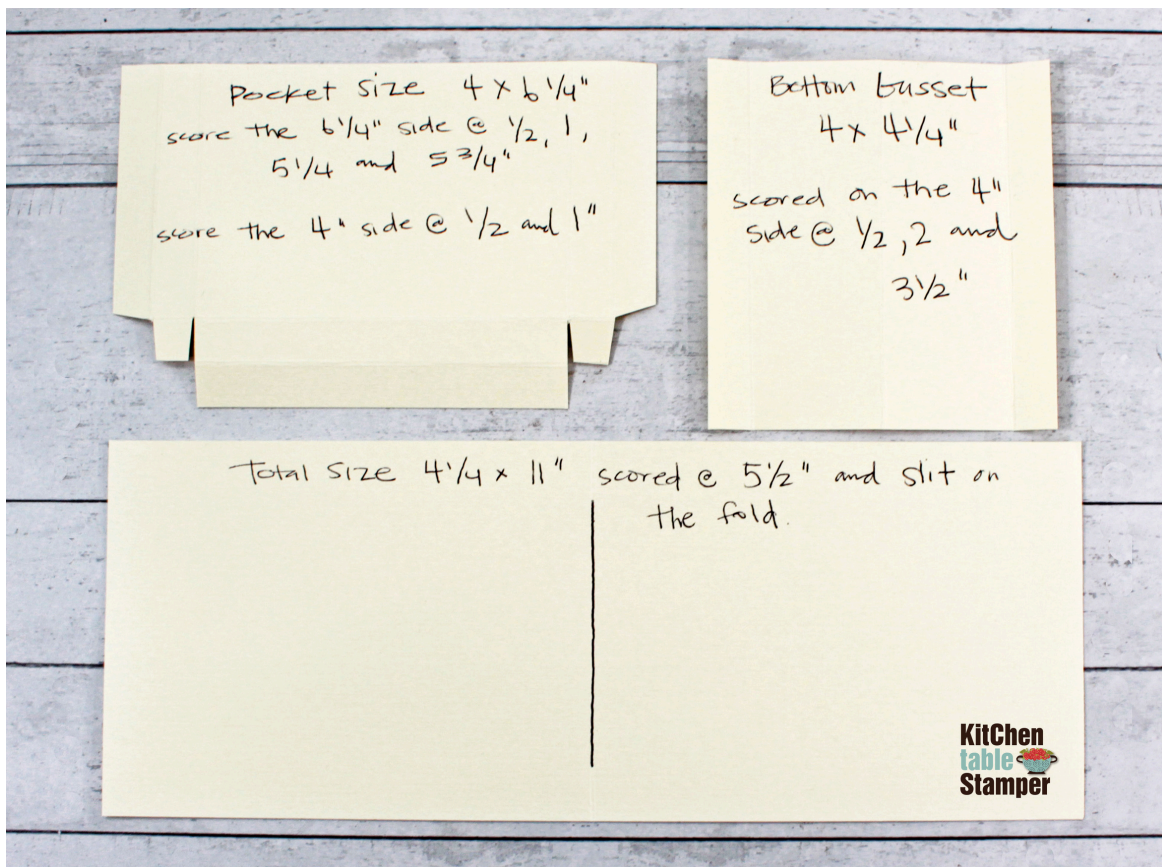 Pocket Size 4 x 6 1/4"
score the 6 1/4" side @ 1/2, 1,
5 1/4 and 5 3/4"
score the 4" side @ 1/2 and 1"
Bottom Gusset
4 x 4 1/4"
scored on the 4"
side @ 1/2, 2 and
3 1/2"
Total Size 4 1/4 x 11" scored @ 5 1/2" and slit on
the fold.
KitChen
table
Stamper